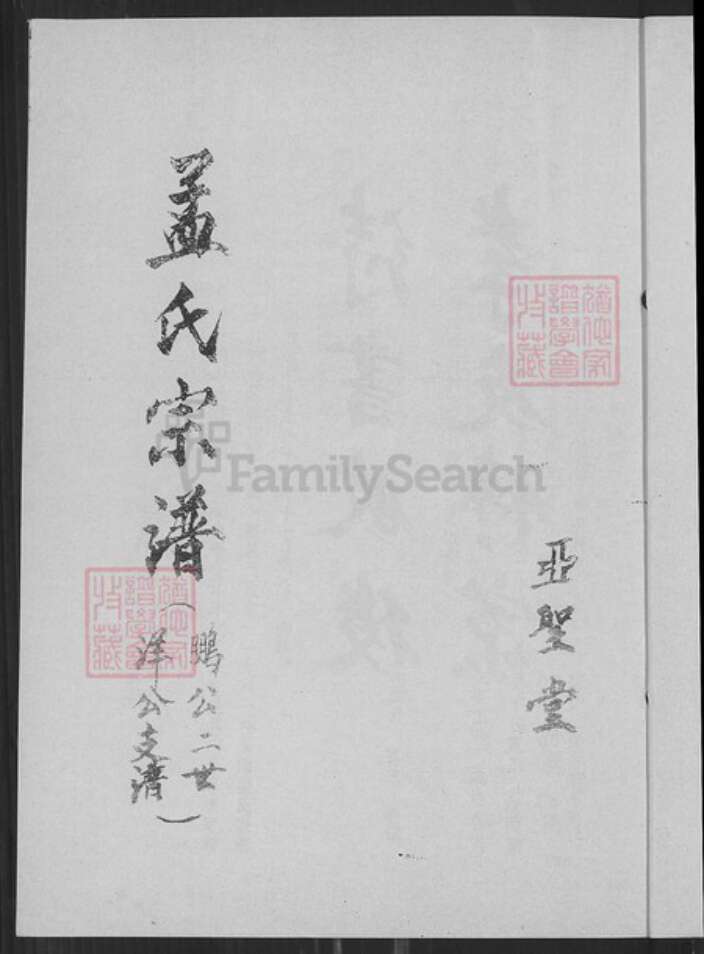 亞聖堂
孟氏宗譜
(鵬公二世
洋公支譜)
猶他家
譜學會
收藏
猶他家
譜學會
收藏
FamilySearch